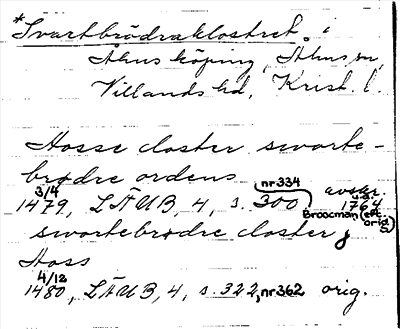 *Svartbrödraklostret. i
Åhus köping, Åhus sn,
Villands hd, Krist. l.
Hosse closter sworte-
brødre ordens
3/4 1479, LÄUB, 4, s. 300 nr 334 avskr. 1764 Broocman (eft. orig)
swortebrødre closter j
Hoss
4/12 1480, LÄUB, 4, s. 322, nr 362 orig.